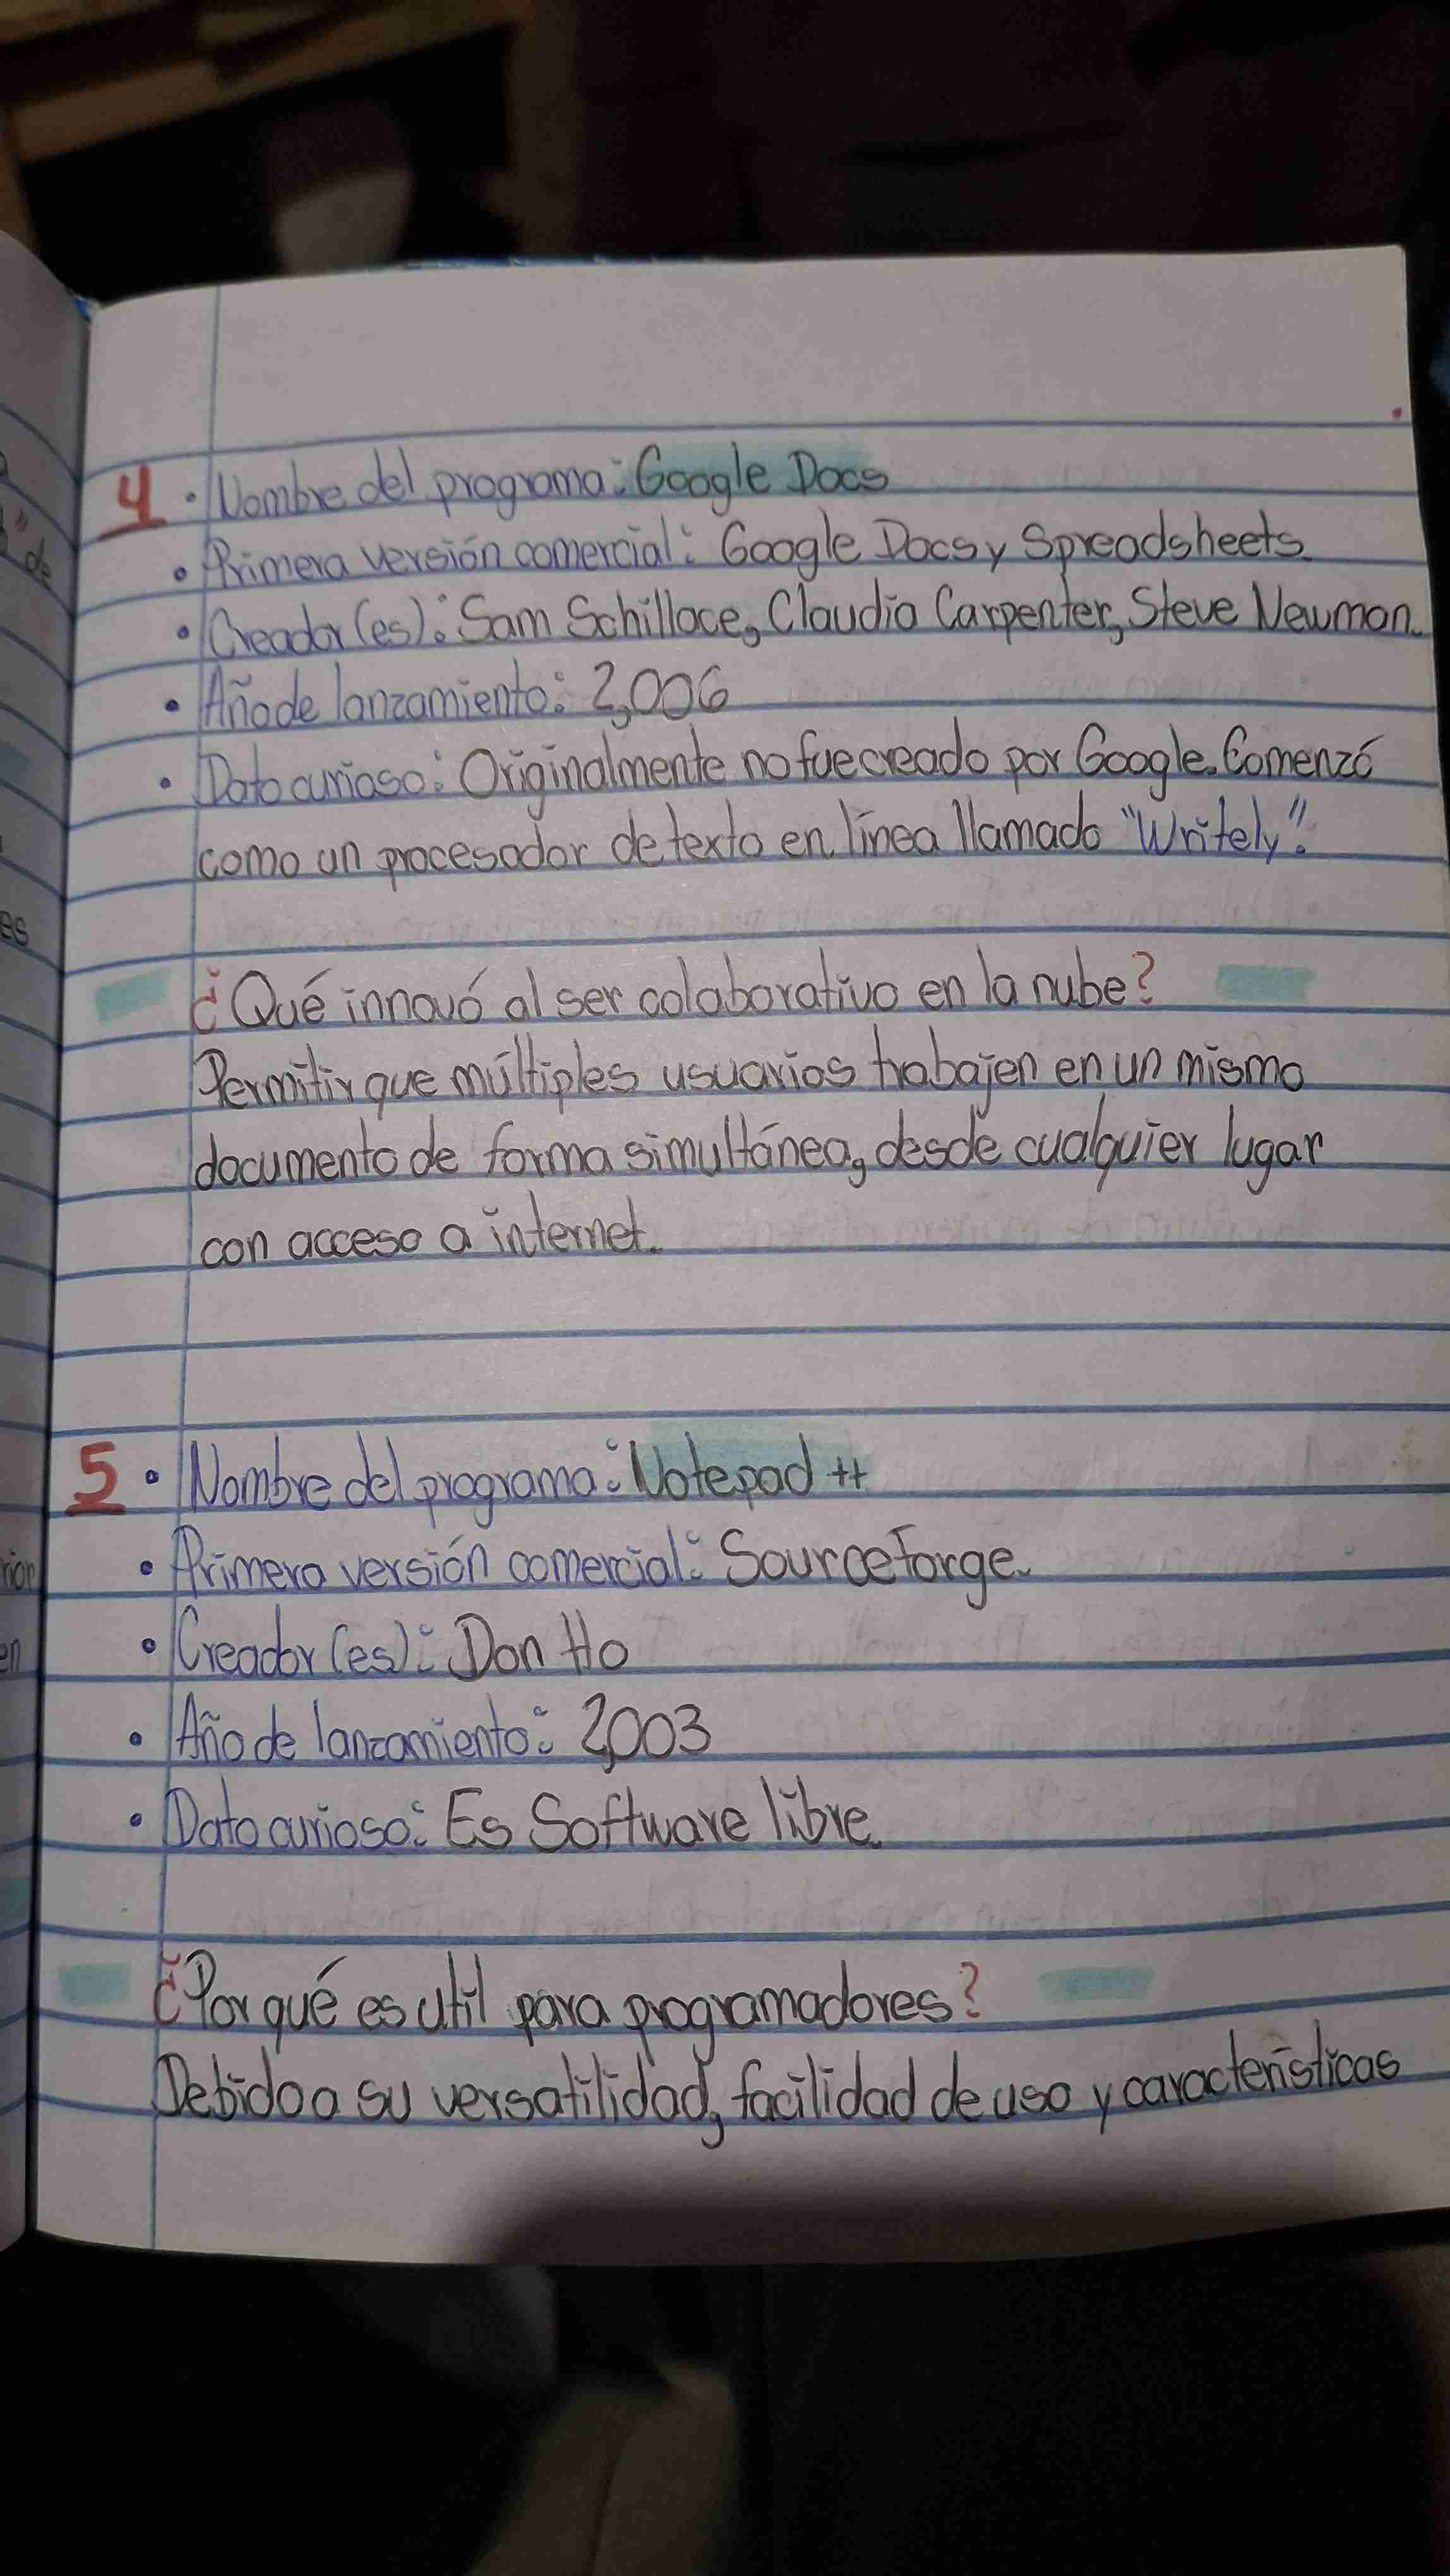 4 • Nombre del programa: Google Docs
• Primera versión comercial: Google Docs y Spreadsheets.
• Creador(es): Sam Schillace, Claudia Carpenter, Steve Newman.
• Año de lanzamiento: 2,006
• Dato curioso: Originalmente no fue creado por Google. Comenzó
como un procesador de texto en línea llamado "Writely".
¿Qué innovó al ser colaborativo en la nube?
Permitir que múltiples usuarios trabajen en un mismo
documento de forma simultánea, desde cualquier lugar
con acceso a internet.
5 • Nombre del programa: Notepad ++
• Primera versión comercial: SourceForge.
• Creador(es): Don Ho
• Año de lanzamiento: 2,003
• Dato curioso: Es Software libre.
¿Por qué es util para programadores?
Debido a su versatilidad, facilidad de uso y características
de
es
en